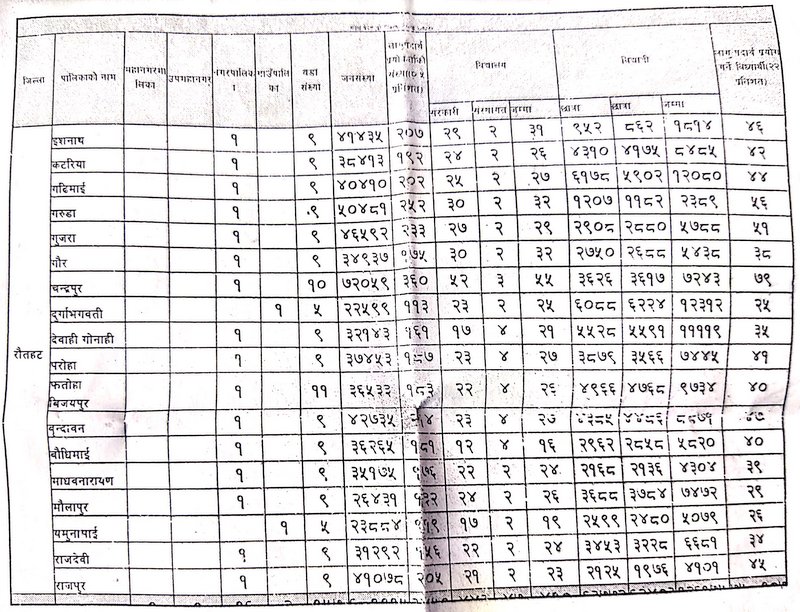 जिल्ला पालिकाको नाम महानगरपालिका उपमहानगर नगरपालिका गाउँपालिका वडा संख्या जनसंख्या विद्यालय विद्यार्थी
सरकारी संस्थागत जम्मा छात्रा छात्रा जम्मा
रौतहट
इशनाथ १ ९ ४१४३५ २०७ २९ २ ३१ ९५२ ८६२ १८१४ ४६
कटरिया १ ९ ३८४१३ १९२ २४ २ २६ ४३१० ४१७५ ८४८५ ४२
गढिमाई १ ९ ४०४१० २०२ २५ २ २७ ६१७८ ५९०२ १२०८० ४४
गरुडा १ ९ ५०४८१ २५२ ३० २ ३२ १२०७ ११८२ २३८९ ५६
गुजरा १ ९ ४६५९२ २३३ २७ २ २९ २९०८ २८८० ५७८८ ५१
गौर १ ९ ३४९३७ १७५ ३० २ ३२ २७५० २६८८ ५४३८ ३८
चन्द्रपुर १ १० ७२०५९ ३६० ५२ ३ ५५ ३६२६ ३६१७ ७२४३ ७९
दुर्गाभगवती १ ५ २२५९९ ११३ २३ २ २५ ६०८८ ६२२४ १२३१२ २५
देवाही गोनाही १ ९ ३२१४३ १६१ १७ ४ २१ ५५२८ ५५९१ १११११९ ३५
परोहा १ ९ ३७४५३ १८७ २३ ४ २७ ३८७९ ३५६६ ७४४५ ४१
फतोहा बिजयपुर १ ११ ३६५३३ १८३ २२ ४ २६ ४९६६ ४७६८ ९७३४ ४०
वृन्दावन १ ९ ४२७३५ २३ ४ २७ ४३८५ ४४८६ ८८७१ ४७
बौधिमाई १ ९ ३६२६५ १८१ १२ ४ १६ २९६२ २८५८ ५८२० ४०
माधवनारायण १ ९ ३५१७५ १७६ २२ २ २४ २१६८ २१३६ ४३०४ ३९
मौलापुर १ ९ २६४३१ १३२ २४ २ २६ ३६८८ ३७८४ ७४७२ २९
यमुनामाई १ ५ २३८८४ ११९ १७ २ १९ २५९९ २४८० ५०७९ २६
राजदेवी १ ९ ३१२९२ १५६ २२ २ २४ ३४५३ ३२२८ ६६८१ ३४
राजपुर १ ९ ४१०७८ २०५ २१ २ २३ २१२५ १९७६ ४१०१ ४५